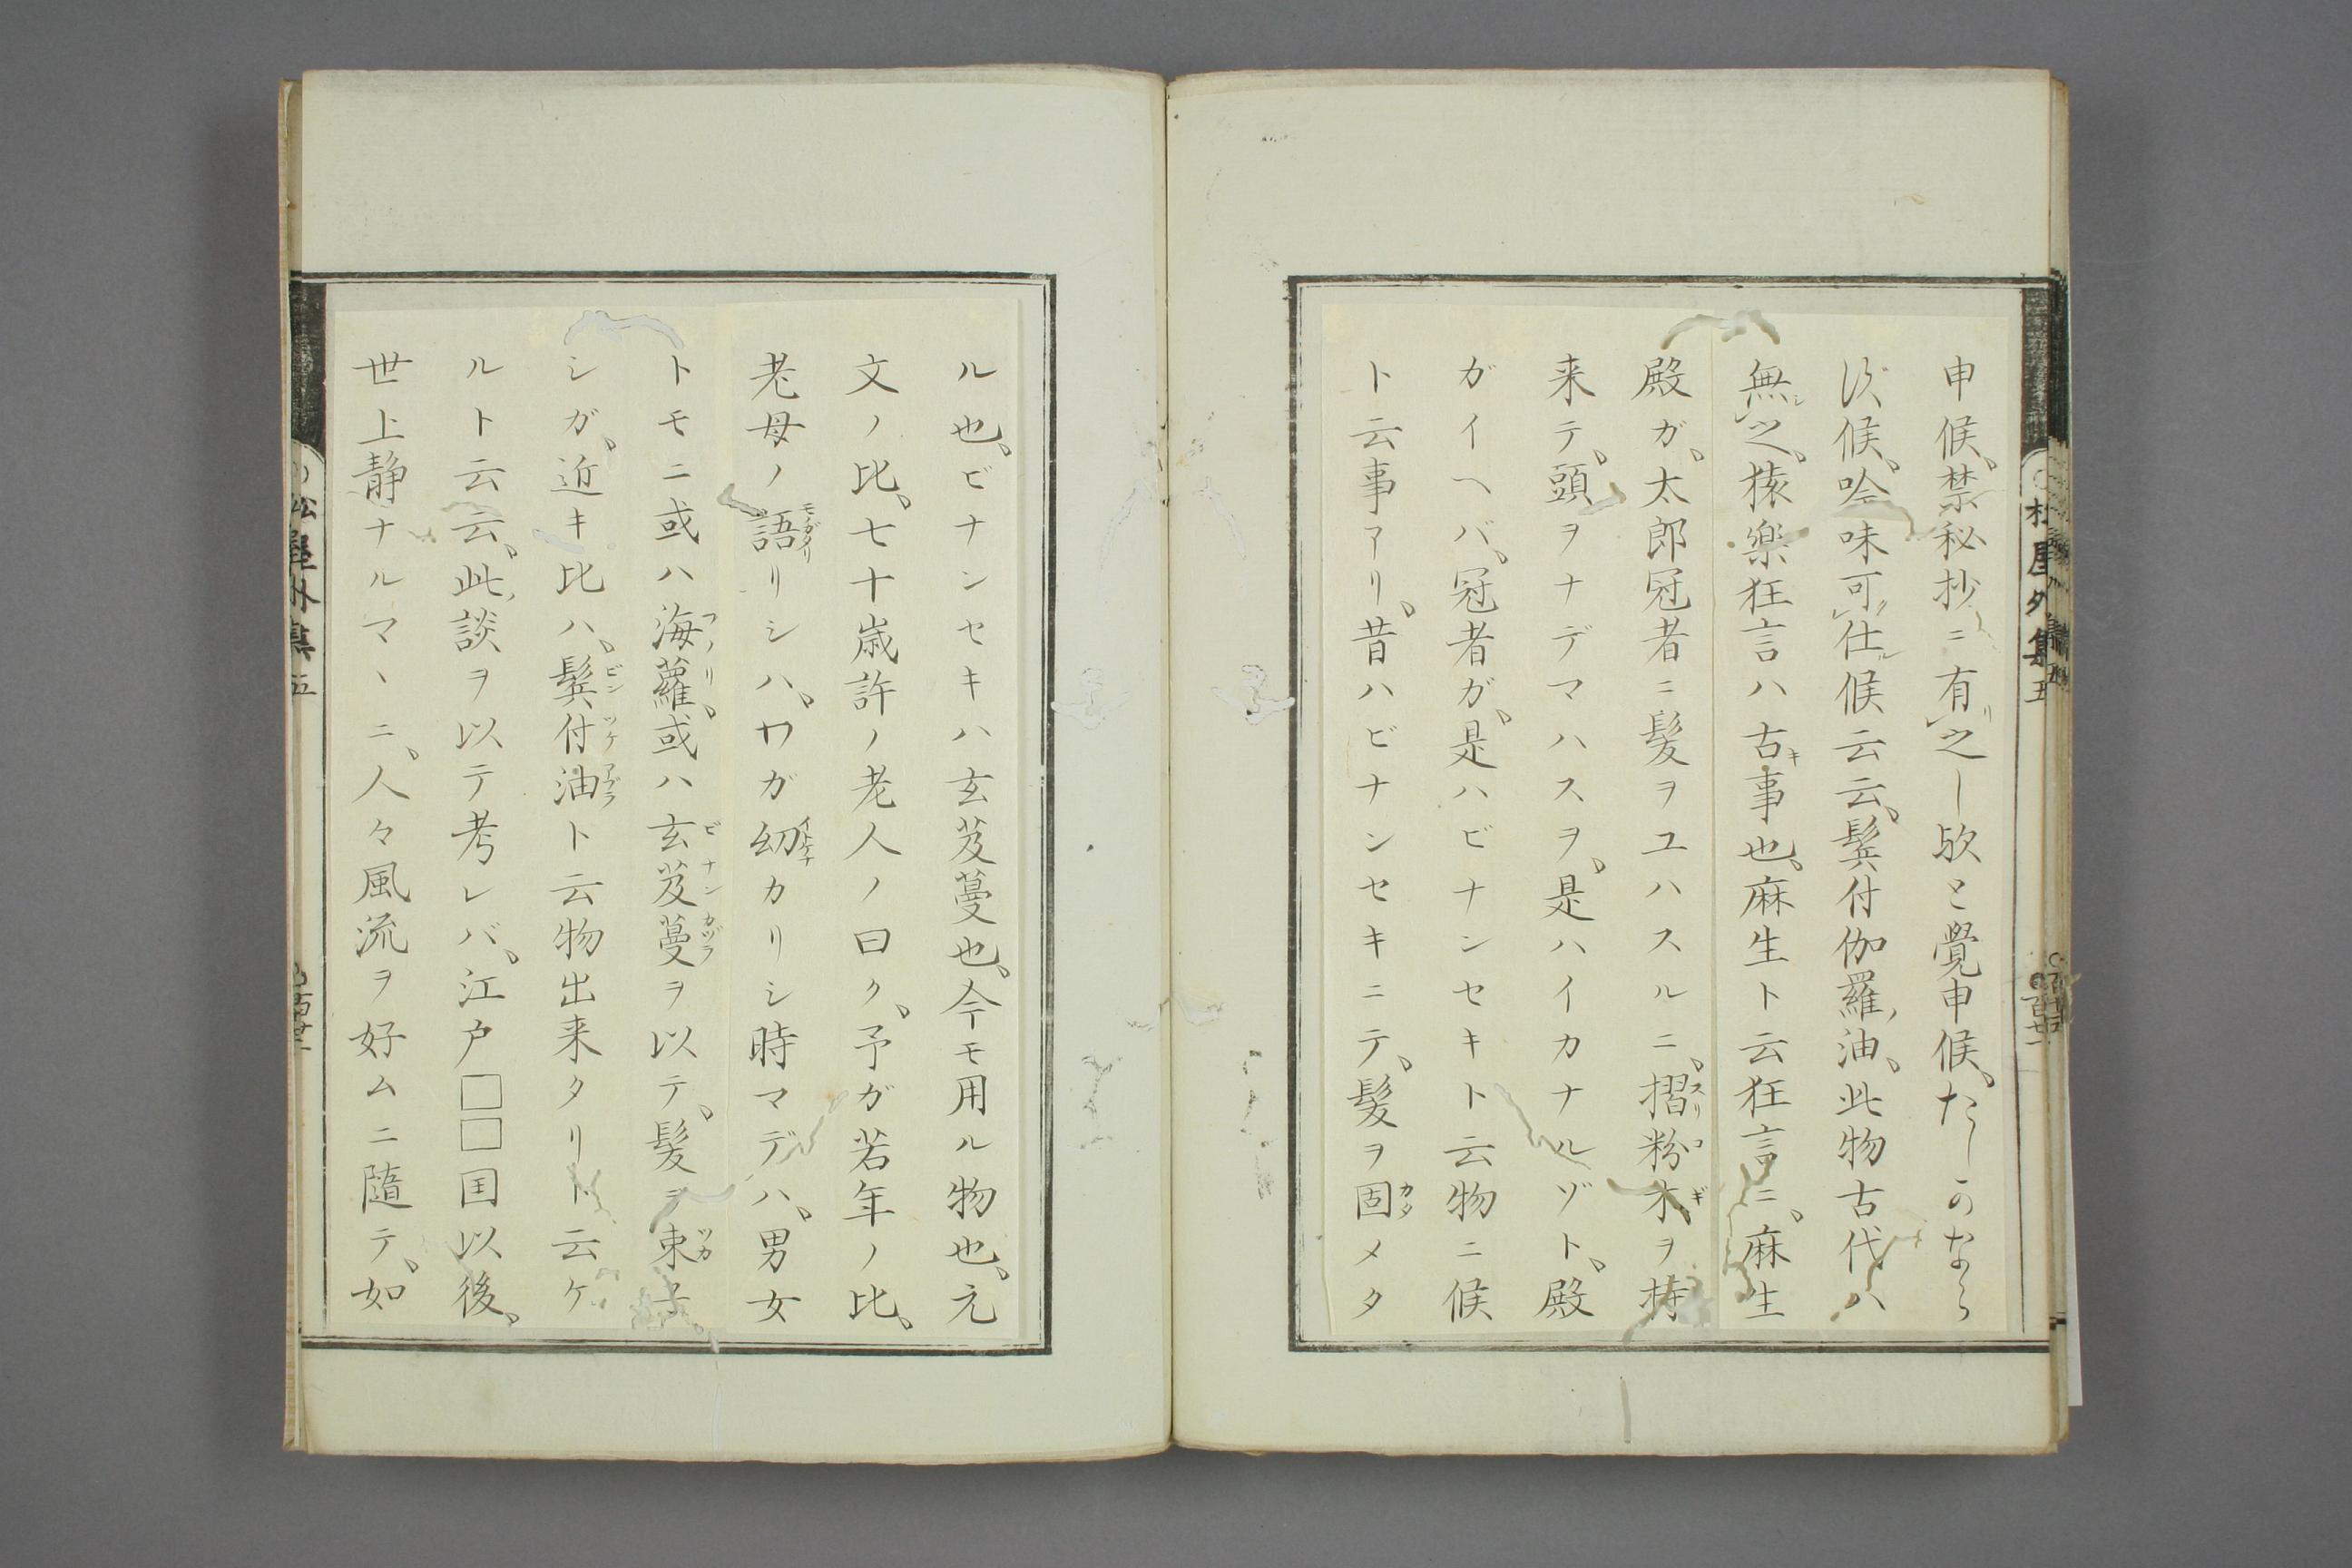 申候、禁秘抄ニ有之し欤と覺申候、たしかなら
ず候、吟味可仕候云云、鬓付伽羅油、此物古代ハ
無之、猿樂狂言ハ古事也、麻生ト云狂言ニ、麻生
殿ガ、太郎冠者ニ髪ヲユハスルニ、摺粉木ヲ持
来テ、頭ヲナデマハスヲ、是ハイカナルゾト、殿
ガイヘバ、冠者ガ、是ハビナンセキト云物ニ候
ト云事アリ、昔ハビナンセキニテ、髪ヲ固メタ
ル也、ビナンセキハ玄芨蔓也、今モ用ル物也、元
文ノ比、七十歳許ノ老人ノ曰ク、予ガ若年ノ比、
老母ノ語リシハ、ワガ幼カリシ時マデハ、男女
トモニ或ハ海蘿、或ハ玄芨蔓ヲ以テ、髪ヲ束子
シガ、近キ比ハ、鬓付油ト云物出来タリト云ケ
ルト云云、此談ヲ以テ考レバ、江戸□□囯以後、
世上静ナルマヽニ、人々風流ヲ好ムニ隨テ、如
松屋外集 五